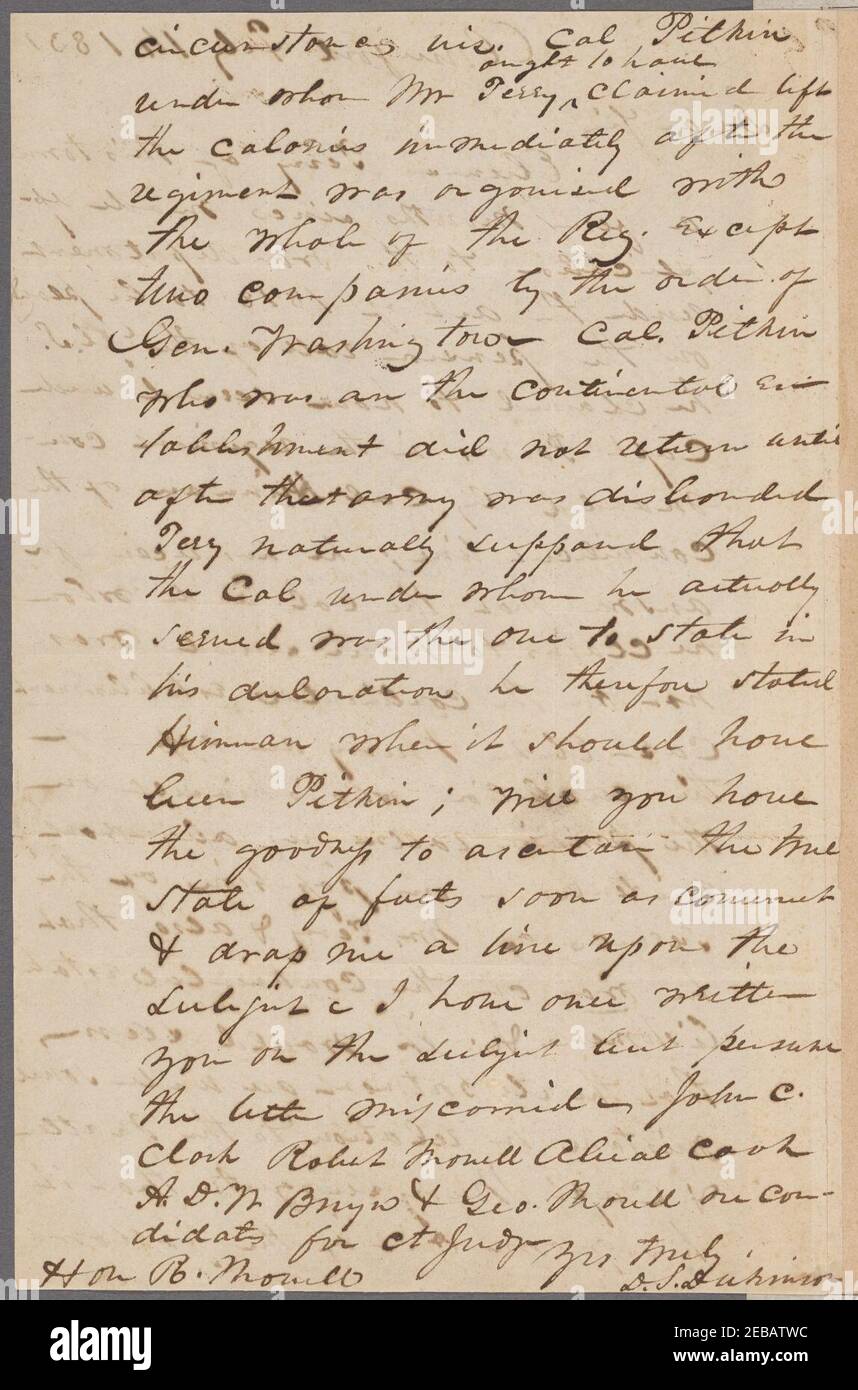 circumstances viz. Col Pitkin
ought to have
under whom Mr Terry ^ claimed left
the colonies immediately after the
regiment was organised with
the whole of the Reg. Except
two companies by the order of
Gen. Washington Col. Pitkin
who was on the continental Es-
tablishment did not return until
after that army was disbanded
Terry naturally supposed that
the Col under whom he actually
served was the one to state in
his declaration he therefore stated
Hinman when it should have
been Pitkin; Will you have
the goodness to ascertain the true
state of facts soon as convenient
& drop me a line upon the
subject I have once written
you on the subject but presume
the letter miscarried John C.
Clark Robert Monell Abial Cook
A. D. W. & Geo. Monell are can-
didates for ct Judge
Yrs truly
Hon R. Monell
D. S. Dickinson
alamy
Image ID: 2EBATWC
www.alamy.com